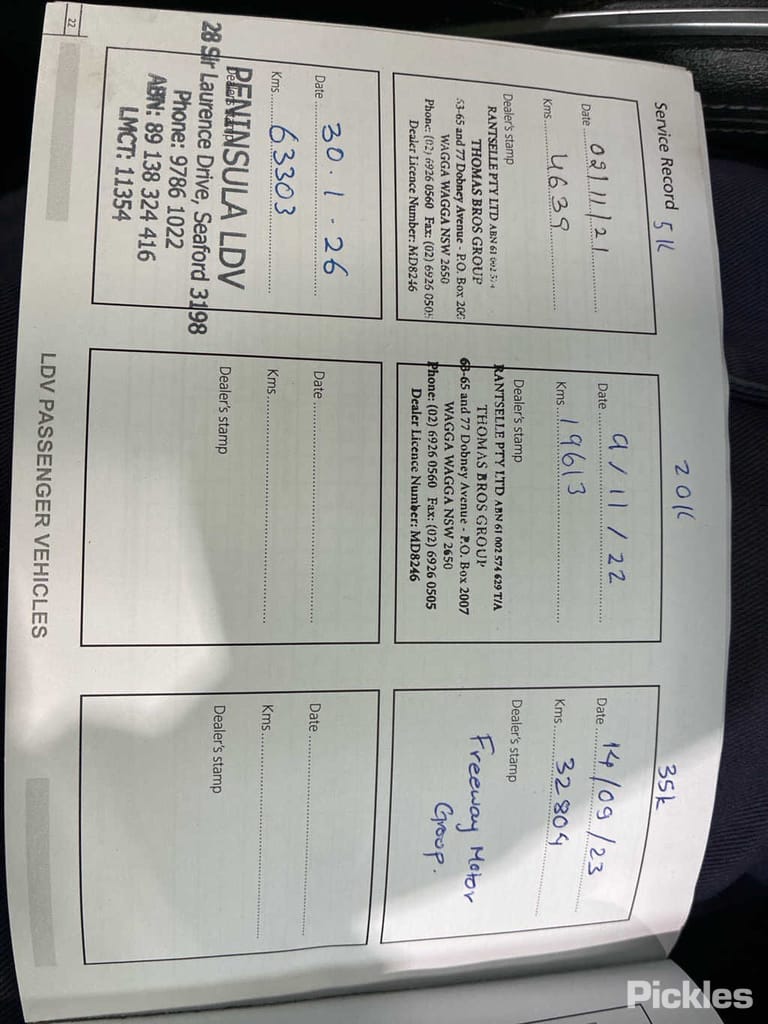 Service Record 5K
Date 02/11/21
Kms 4639
Dealer's stamp
RANTSELLE PTY LTD ABN 61 002 574
THOMAS BROS GROUP
63-65 and 77 Dobney Avenue - P.O. Box 200
WAGGA WAGGA NSW 2650
Phone: (02) 6926 0560 Fax: (02) 6926 0505
Dealer Licence Number: MD8246
20K
Date 9/11/22
Kms 19613
Dealer's stamp
RANTSELLE PTY LTD ABN 61 002 574 629 T/A
THOMAS BROS GROUP
63-65 and 77 Dobney Avenue - P.O. Box 2007
WAGGA WAGGA NSW 2650
Phone: (02) 6926 0560 Fax: (02) 6926 0505
Dealer Licence Number: MD8246
35K
Date 14/09/23
Kms 32804
Dealer's stamp
Freeway Motor
Group.
Date 30.1.26
Kms 63303
Dealer's stamp
PENINSULA LDV
28 Sir Laurence Drive, Seaford 3198
Phone: 9786 1022
ABN: 89 138 324 416
LMCT: 11354
Date
Kms
Dealer's stamp
Date
Kms
Dealer's stamp
22
LDV PASSENGER VEHICLES
Pickles